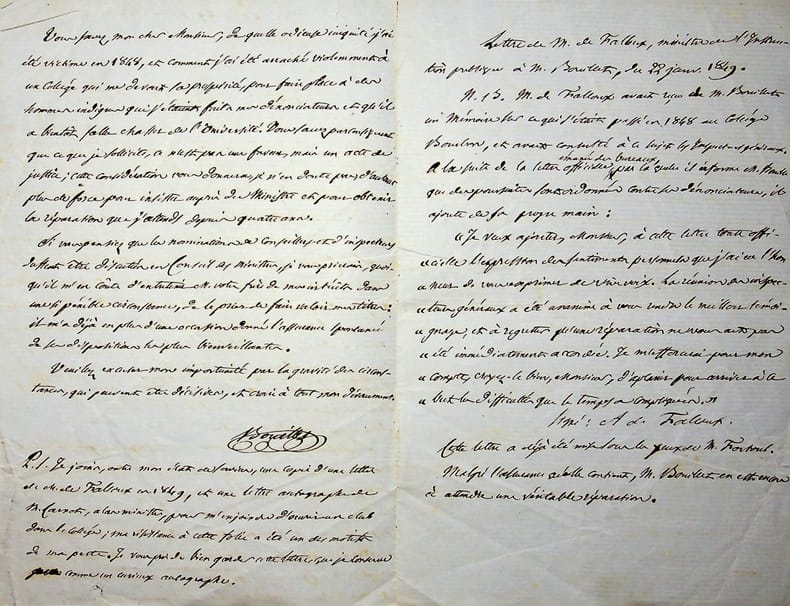 Vous savez, mon cher Monsieur, de quelle odieuse iniquité j'ai
été victime en 1848, et comment j'ai été arraché violemment à
un Collège qui me devait sa prospérité, pour faire place à des
hommes indignes qui s'étaient faits mes dénonciateurs et qu'il
a bientôt fallu chasser de l'Université. Vous savez par conséquent
que ce que je sollicite, ce n'est pas une faveur, mais un acte de
justice; cette considération vous donnera, je n'en doute pas, d'autant
plus de force pour insister auprès du Ministre et pour obtenir
la réparation que j'attends depuis quatre ans.
Si vous pensiez que la nomination de Conseillers et d'inspecteurs
dût être discutée en Conseil des Ministres, je vous prierais, quoi-
qu'il m'en coûte d'entretenir M. votre frère de mes intérêts dans
une si pénible circonstance, de le prier de faire valoir mes titres:
il m'a déjà en plus d'une occasion donné l'assurance spontanée
de ses dispositions les plus bienveillantes.
Veuillez excuser mon importunité par la gravité des circons-
tances, qui peuvent être décisives, et croire à tout mon dévouement.
Bouillet
P.S. Je joins, outre mon état de services, une copie d'une lettre
de M. de Falloux en 1849, et une lettre autographe de
M. Carnot, alors ministre, pour m'enjoindre d'ouvrir un club
dans le Collège; ma résistance à cette folie a été un des motifs
de ma perte. Je vous prie de bien garder cette lettre, que je conserve
comme un curieux autographe.
Lettre de M. de Falloux, ministre de l'Instruc-
tion publique à M. Bouillet, du 22 janv. 1849.
N.B. M. de Falloux avait reçu de M. Bouillet
un Mémoire sur ce qui s'était passé en 1848 au Collège
Bourbon, et avait consulté à ce sujet les Inspect. généraux.
émanée des bureaux,
A la suite de la lettre officielle par laquelle il informe M. Bouillet
que des poursuites sont ordonnées contre les dénonciateurs, il
ajoute de sa propre main:
« Je veux ajouter, Monsieur, à cette lettre toute offi-
« cielle l'expression des sentiments personnels que j'ai eu l'hon
« neur de vous exprimer de vive voix. La réunion des inspec-
« teurs généraux a été unanime à vous rendre le meilleur témoi-
« gnage, et à regretter qu'une réparation ne vous ait pas
« été immédiatement accordée. Je m'efforcerai pour mon
« compte, croyez-le bien, Monsieur, d'aplanir pour arriver à ce
« but les difficultés que le temps a compliquées. »
Signé: A. de Falloux.
Cette lettre a déjà été mise sous les yeux de M. Fortoul.
Malgré l'assurance qu'elle contient, M. Bouillet en est encore
à attendre une véritable réparation.